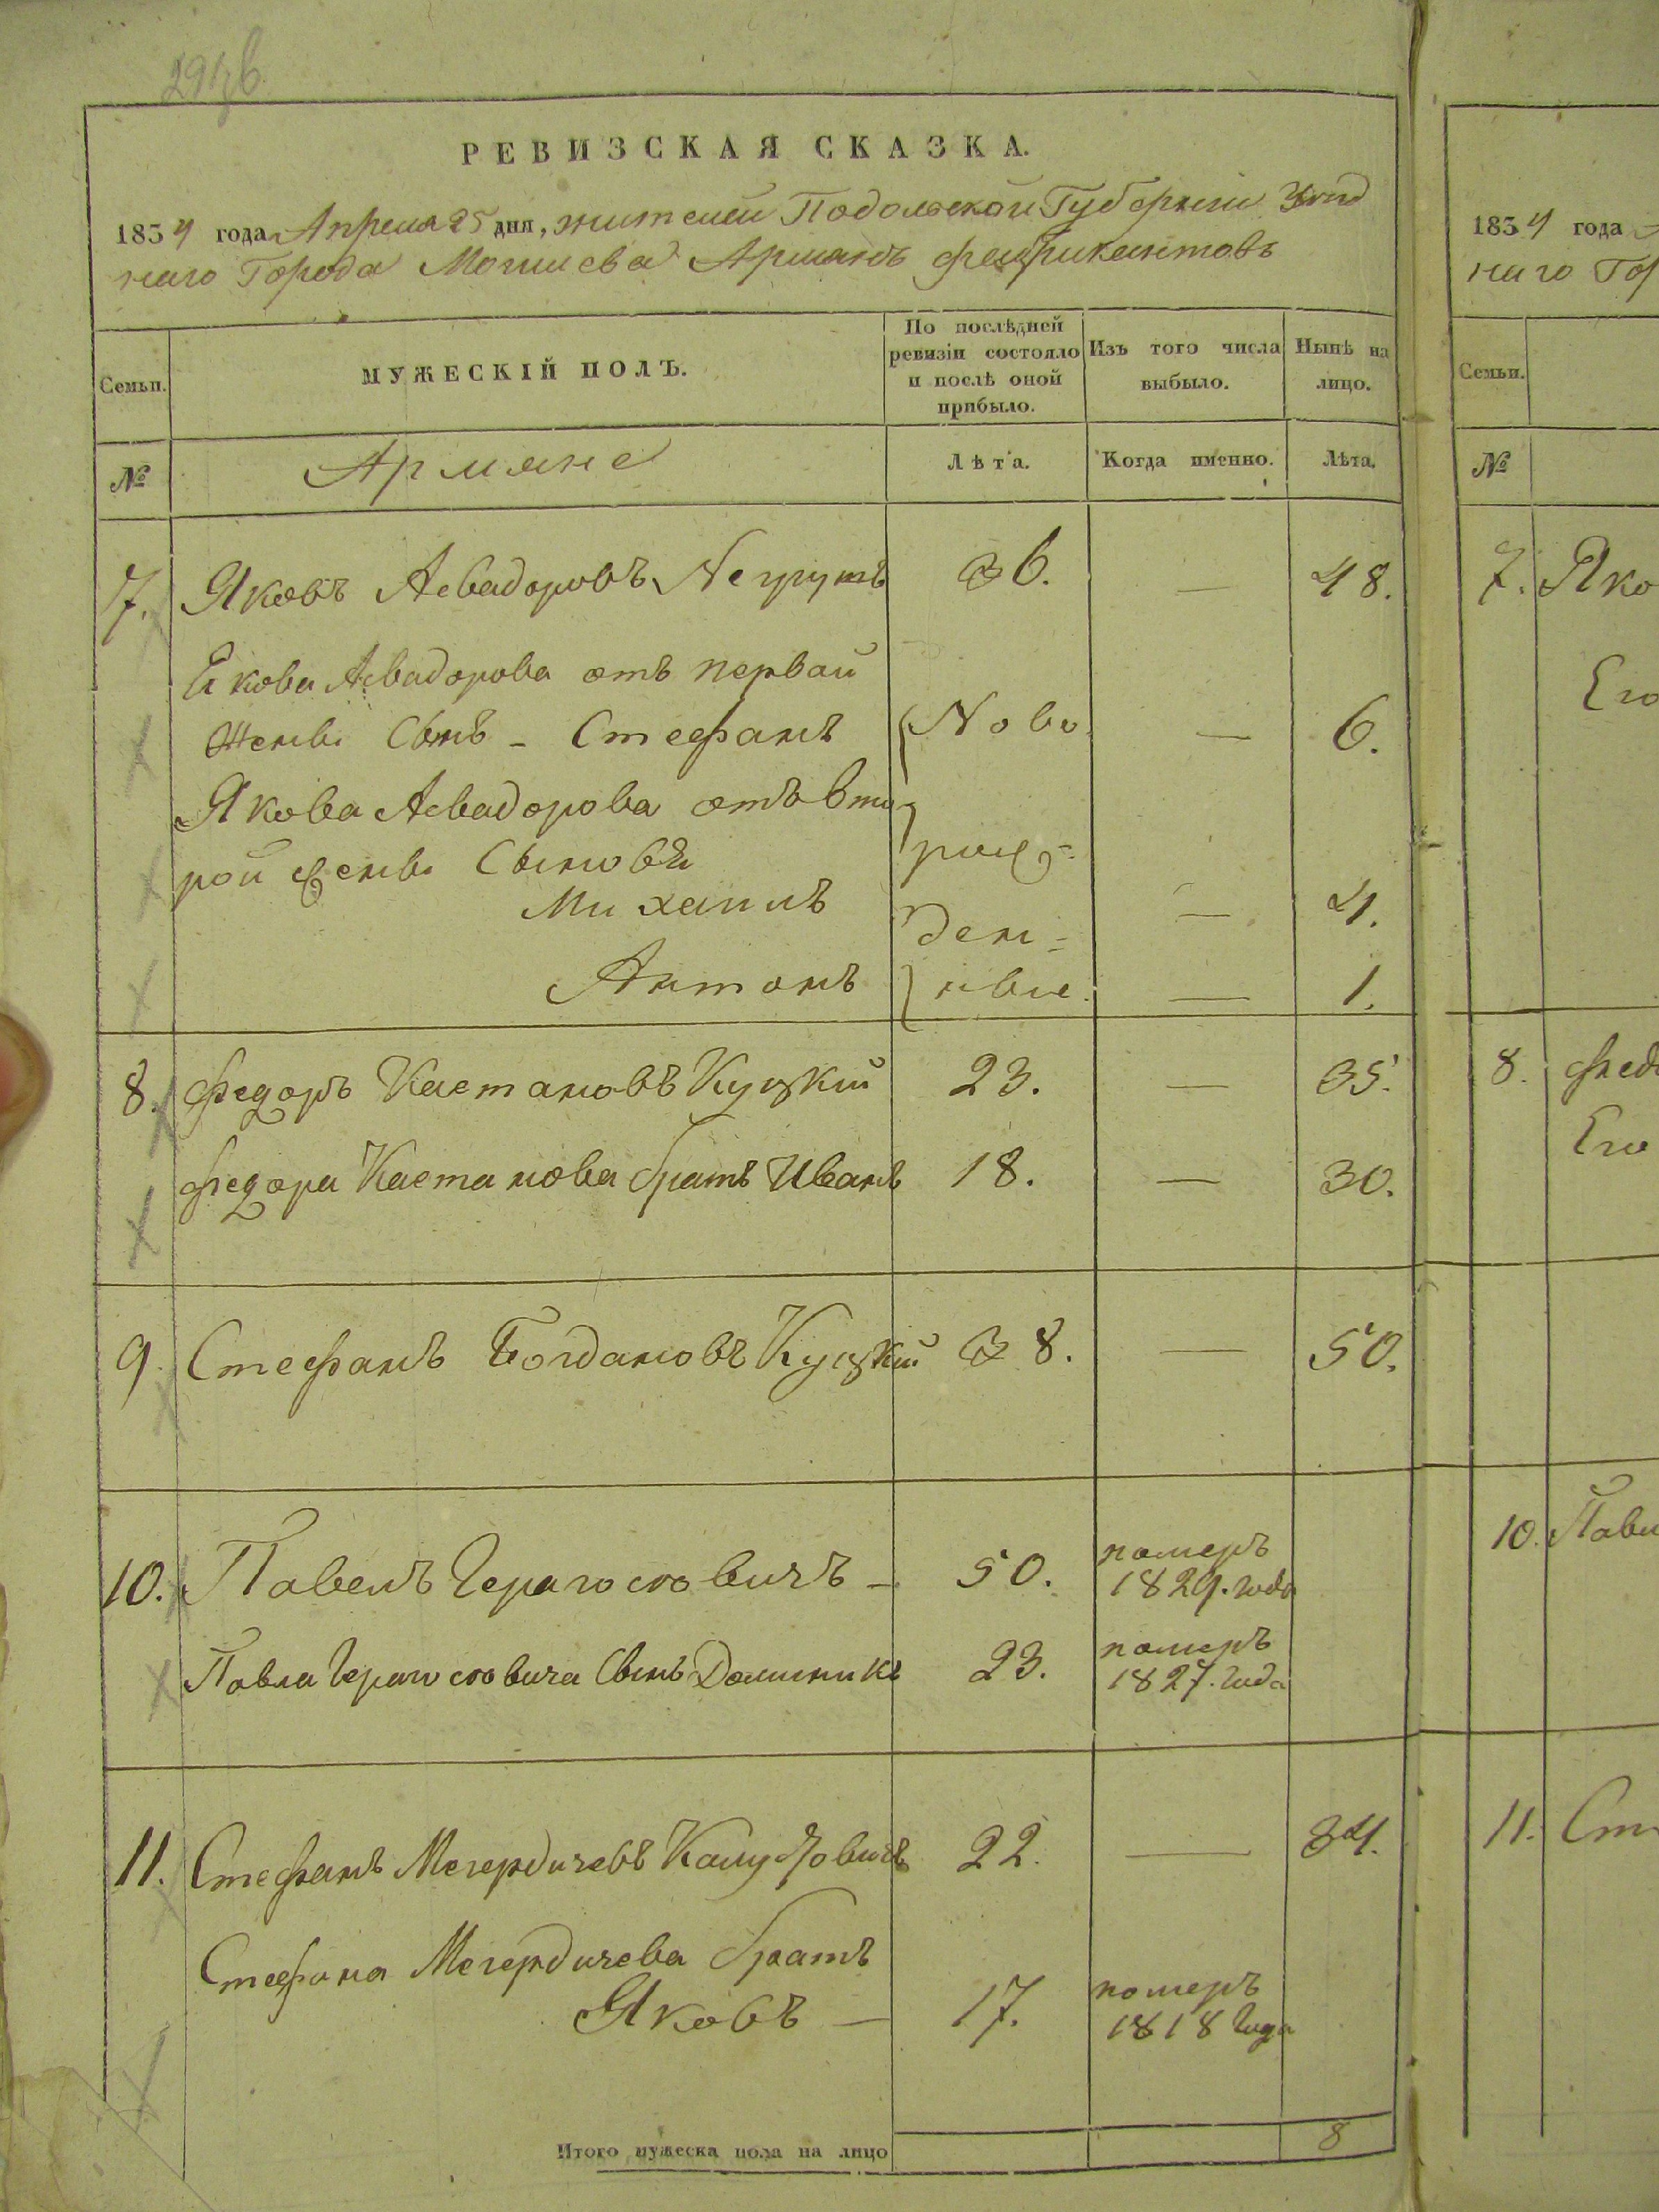 РЕВИЗСКАЯ СКАЗКА.
1834 года Апреля 25 дня, жителей Подольской Губернии Уезд
наго Города Могилева Армянъ фабрикантовъ
1834 года
наго Гор
Семьи.
МУЖЕСКІЙ ПОЛЪ.
По послѣдней ревизіи состояло и послѣ оной прибыло.
Изъ того числа выбыло.
Нынѣ на лицо.
Семьи.
№
Армяне
Лѣта.
Когда именно.
Лѣта.
№
7. Яковъ Асвадоровъ Негрутъ 36. — 48.
Якова Асвадорова отъ первой
жены Сынъ - Стефанъ Ново — 6.
Якова Асвадорова отъ вто
рой жены Сыновья рож-
Михаилъ ден- — 4.
Антонъ ные. — 1.
8. Федоръ Кастановъ Куцкий 23. — 35.
Федора Кастанова братъ Иванъ 18. — 30.
9. Стефанъ Богдановъ Куцкий 38. — 50.
10. Павелъ Герагосовичъ - 50. померъ
1829. года
Павла Герагосовича Сынъ Доминикъ 23. померъ
1827. года
11. Стефанъ Мегердичевъ 22. — 34.
Стефана Мегердичева братъ
Яковъ — 17. померъ
1818 года
Итого мужеска пола на лицо 8
7. Яко
Его
8. Фед
Его
10. Павл
11. Ст